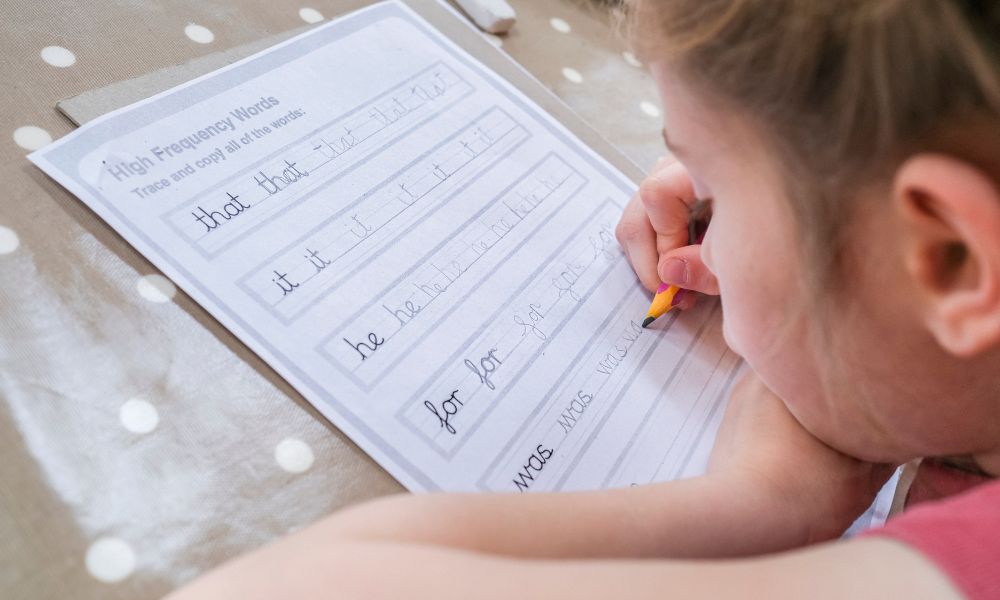 High Frequency Words
Trace and copy all of the words:
that that that that that
it it it it it it it
he he he he he he he h
for for for for fo
was was was wa